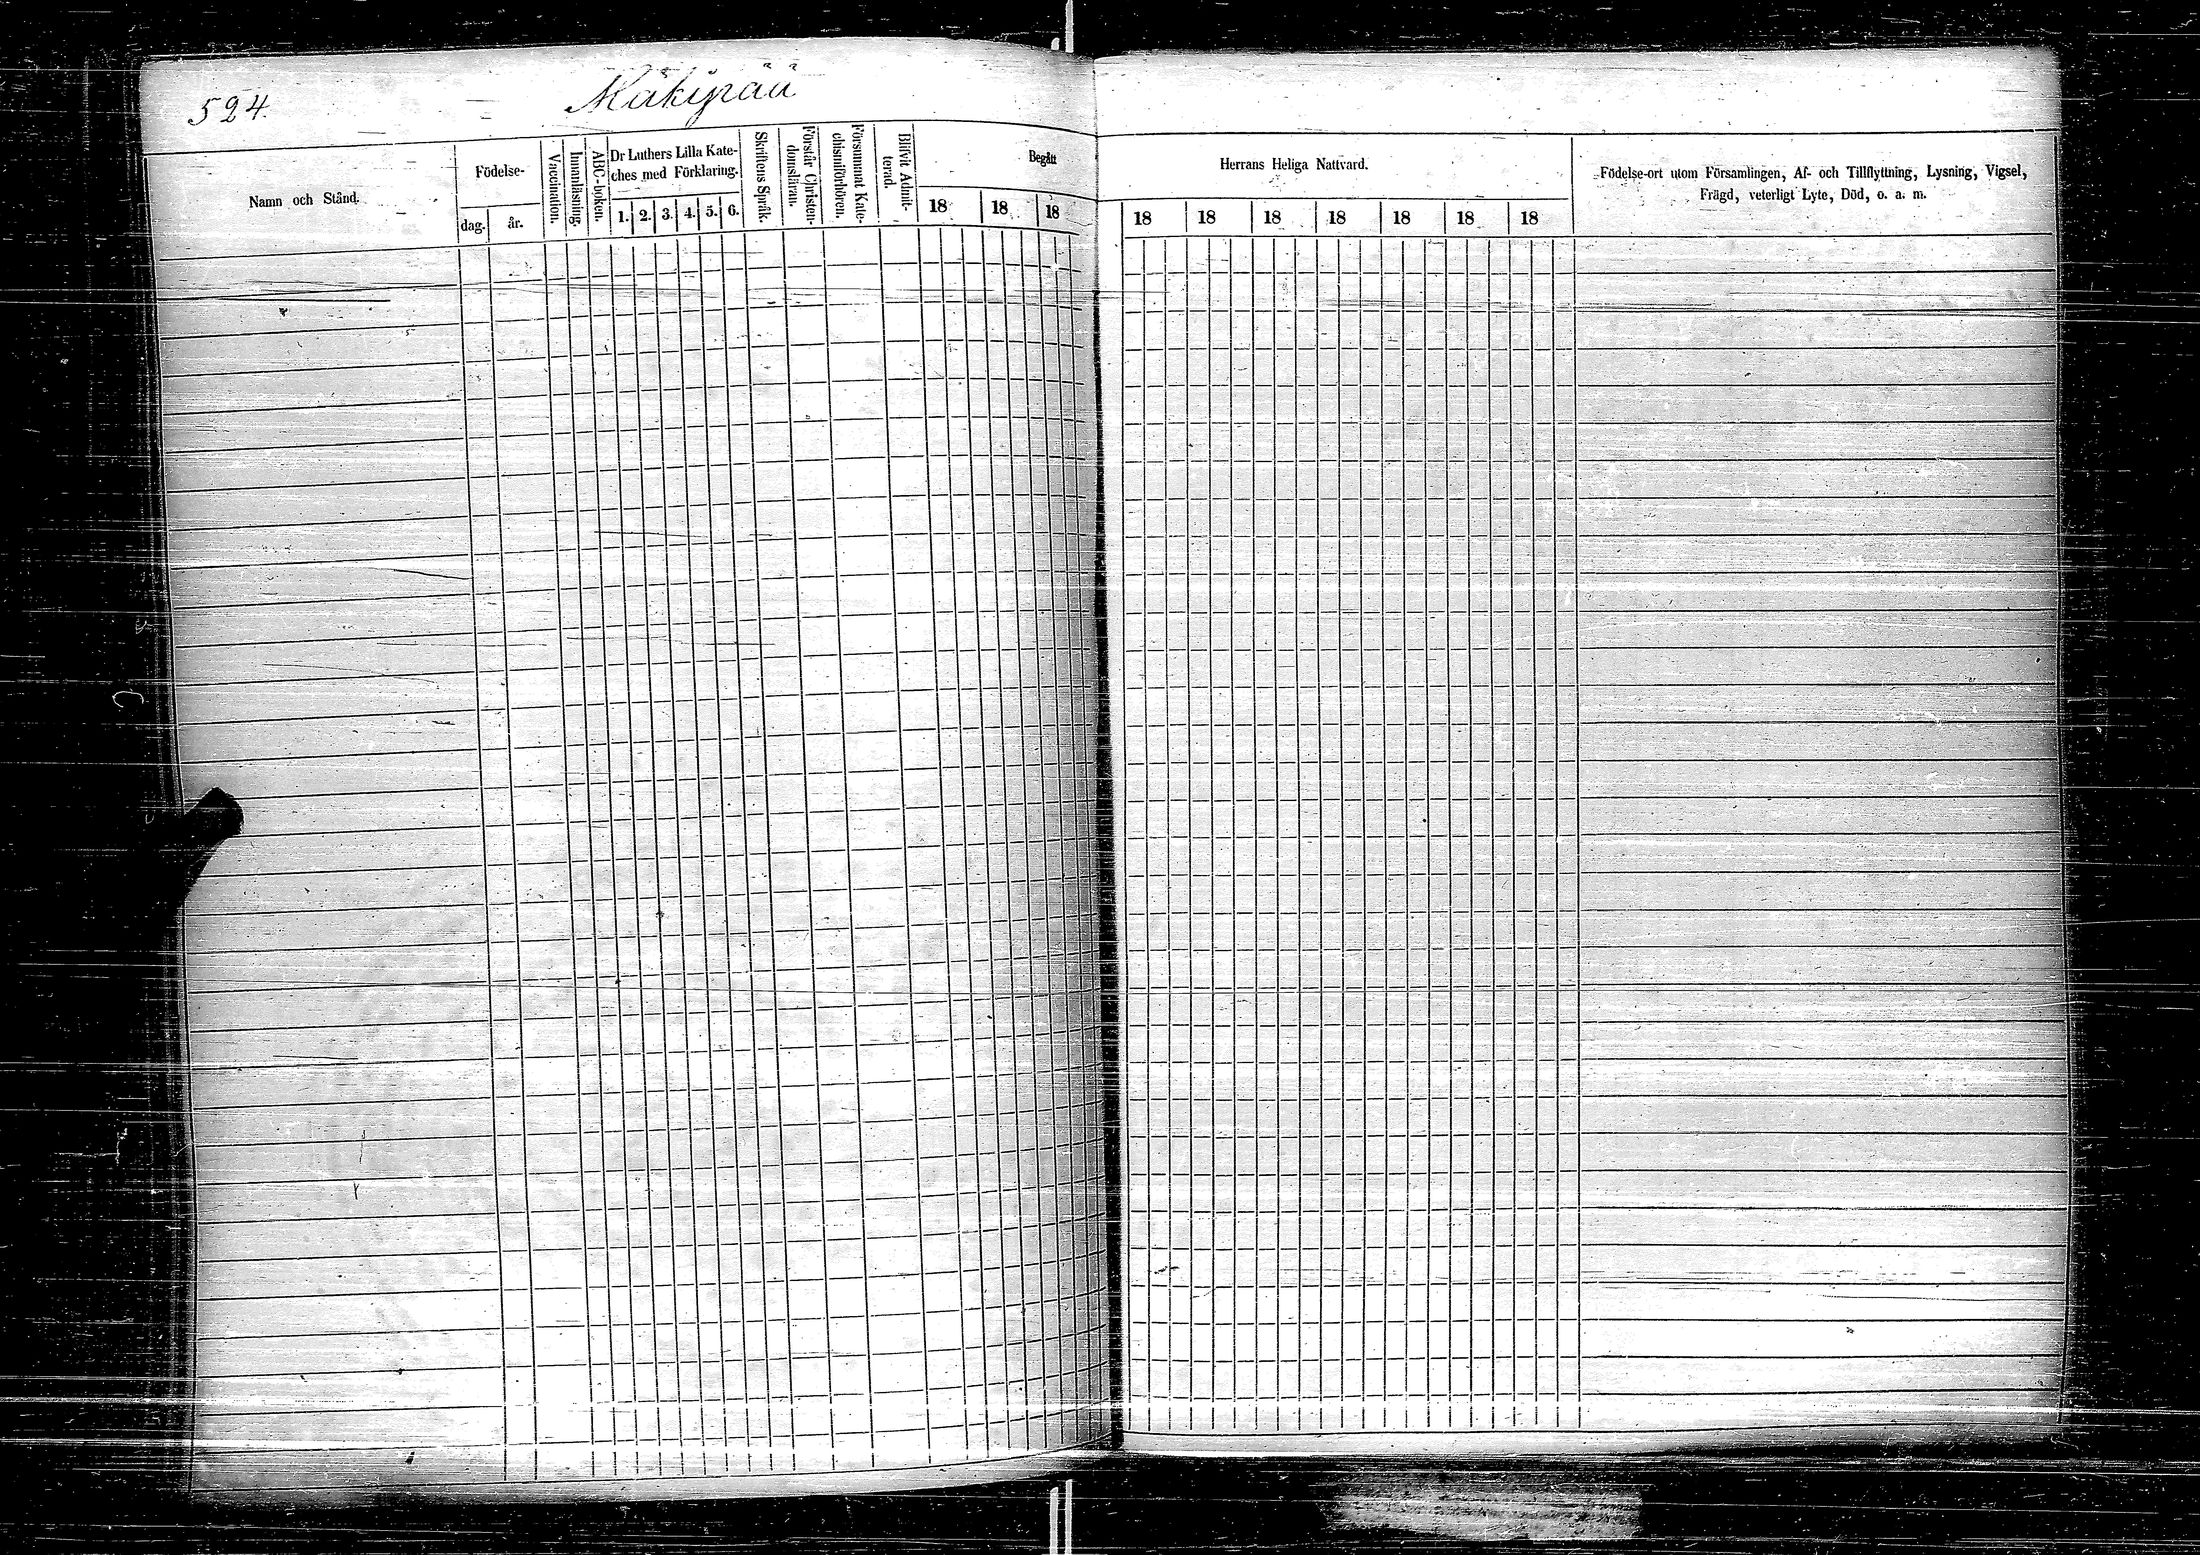 524.
Mäkipää
Namn och Stånd.
Födelse-
dag.
år.
Vaccination.
Innanläsning.
ABC-boken.
Dr Luthers Lilla Kate-
ches med Förklaring.
1. 2. 3. 4. 5. 6.
Skriftens Språk.
Förstår Christen-
domsläran.
Försummat Kate-
chismiförhören.
Blifvit Admit-
terad.
Begått
18 18 18
Herrans Heliga Nattvard.
18 18 18 18 18 18 18
Födelse-ort utom Församlingen, Af- och Tillflyttning, Lysning, Vigsel,
Frägd, veterligt Lyte, Död, o. a. m.